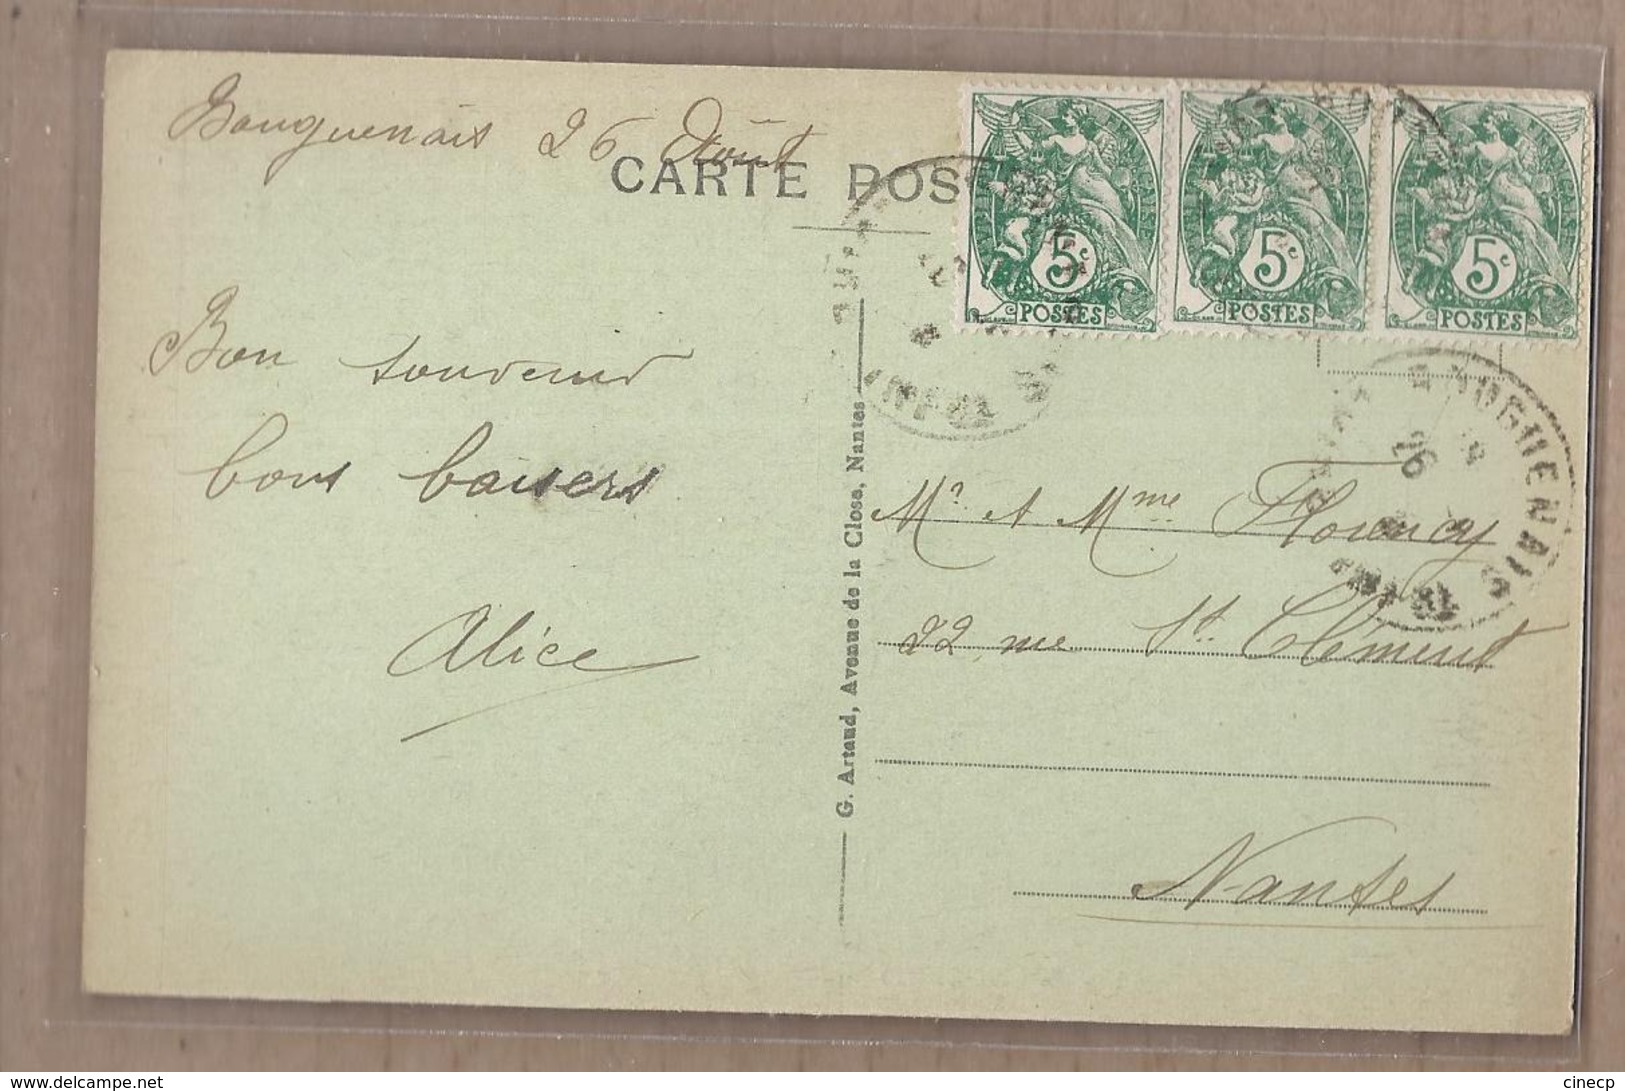 Bouguenais 26 Août
CARTE POS
Bon souvenir
bons baisers
Alice
G. Artaud, Avenue de la Close, Nantes
5c
POSTES
5c
POSTES
5c
POSTES
BOUGUENAIS
26
Mr et Mme Florency
22 rue St. Clément
Nantes
www.delcampe.net
cinecp